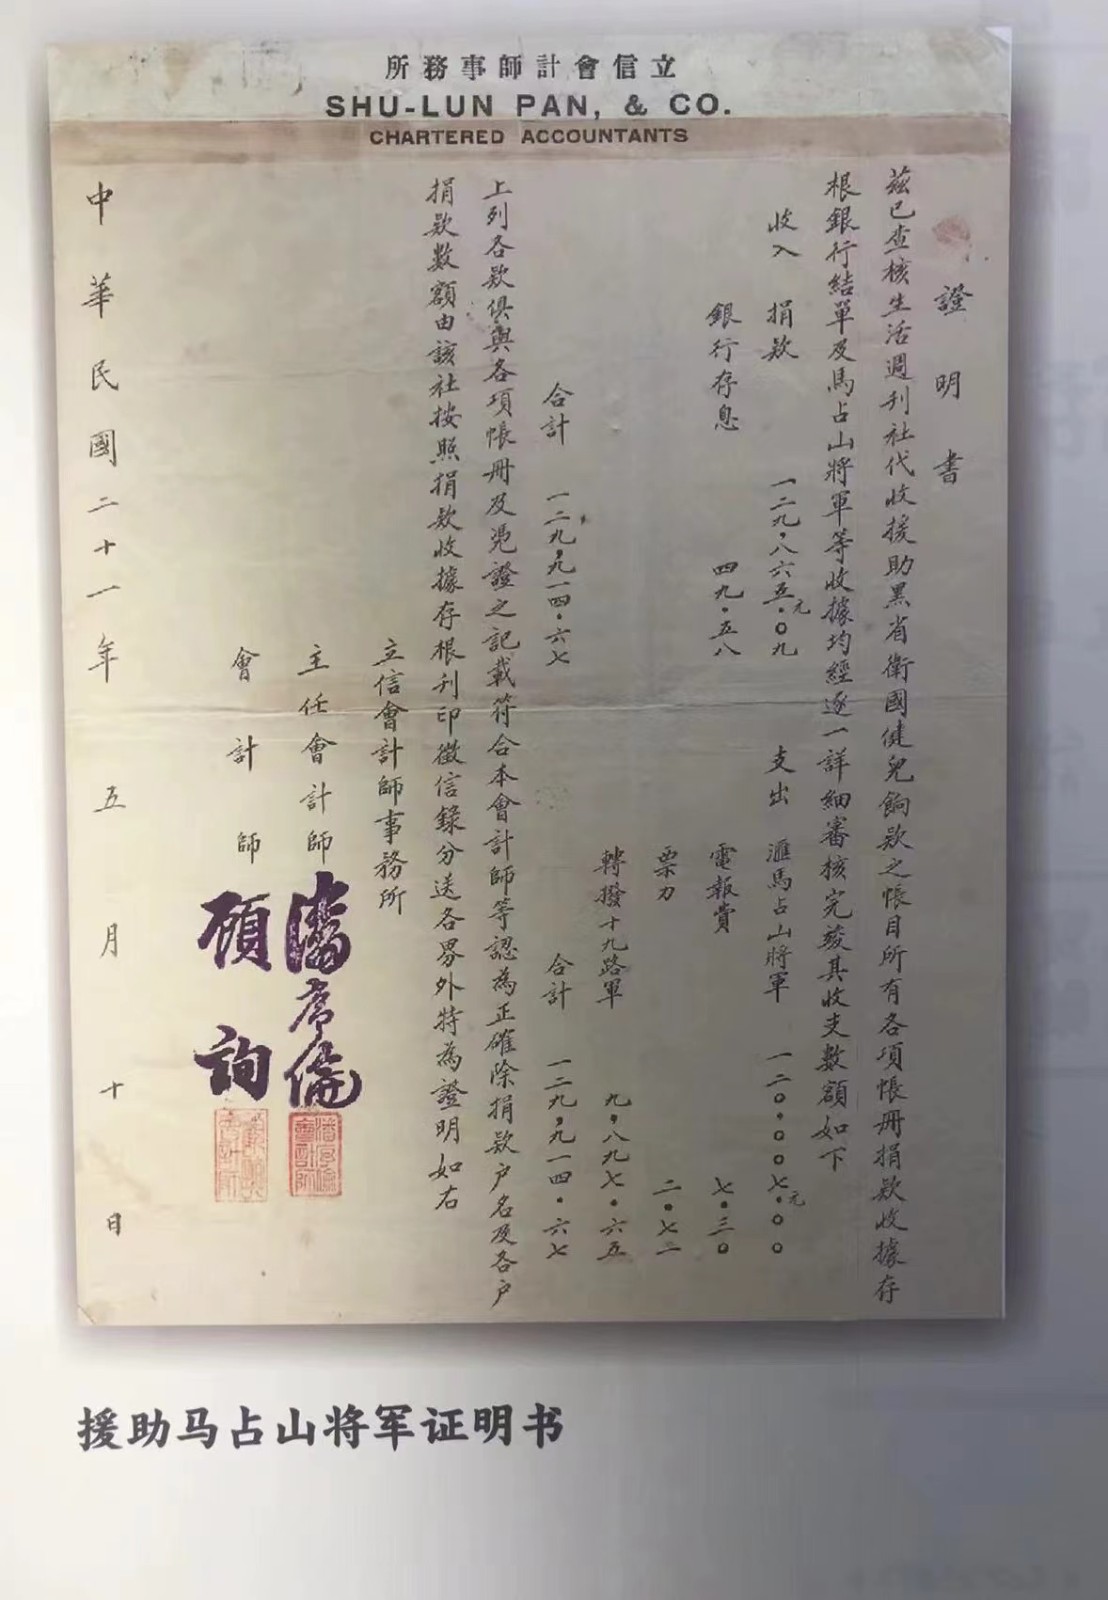 所務事師計會信立
SHU-LUN PAN, & CO.
CHARTERED ACCOUNTANTS
證明書
茲已查核生活週刊社代收援助黑省衛國健兒餉款之帳目所有各項帳冊捐款收據存
根銀行結單及馬占山將軍等收據均經逐一詳細審核完竣其收支數額如下
收入 捐款 一二九,八六五元.〇九 支出 滙馬占山將軍 一二〇,〇〇七元.〇〇
銀行存息 四九.五八 電報費 七.三〇
票力 二.七二
轉撥十九路軍 九,八九七.六五
合計 一二九,九一四.六七 合計 一二九,九一四.六七
上列各款俱與各項帳冊及憑證之記載符合本會計師等認為正確除捐款户名及各户
捐款數額由該社按照捐款收據存根刋印徵信錄分送各界外特為證明如右
立信會計師事務所
主任會計師 潘序倫
會計師 顧詢
中華民國二十一年五月十日
援助马占山将军证明书